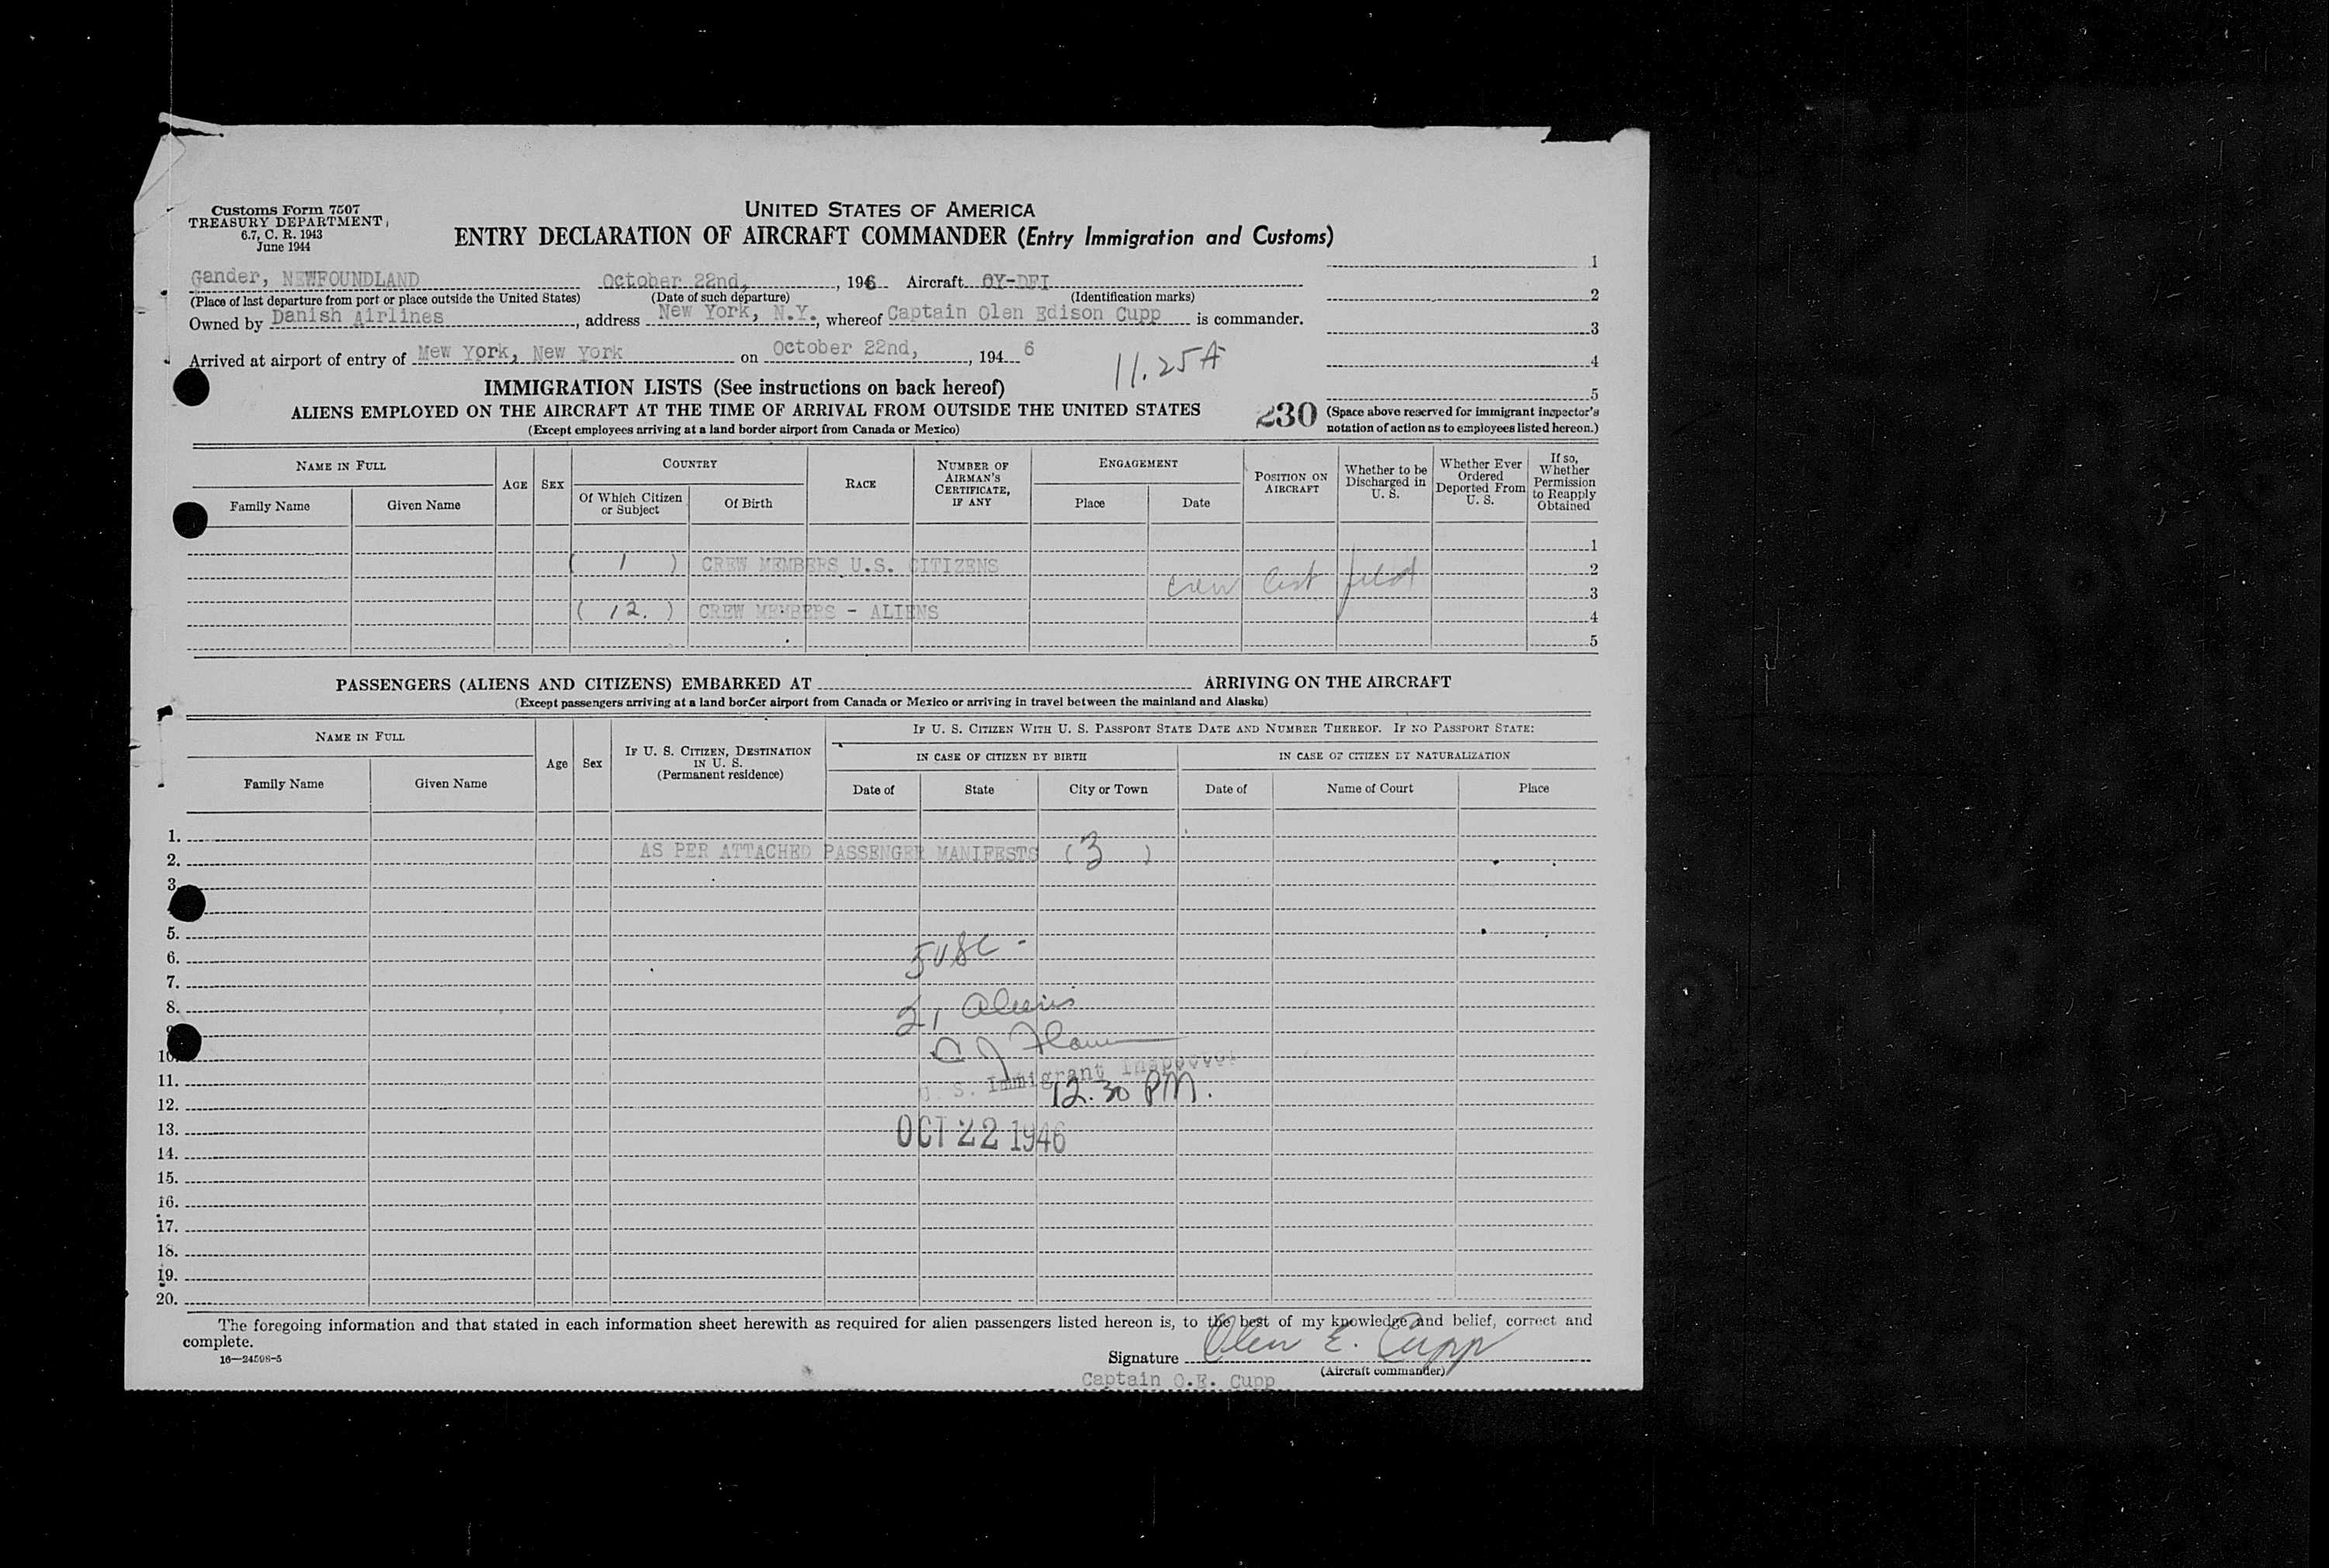 Customs Form 7507
TREASURY DEPARTMENT
6.7, C. R. 1943
June 1944
UNITED STATES OF AMERICA
ENTRY DECLARATION OF AIRCRAFT COMMANDER (Entry Immigration and Customs)
Gander, NEWFOUNDLAND October 22nd, , 1946 Aircraft OY-DFI
(Place of last departure from port or place outside the United States) (Date of such departure) (Identification marks)
Owned by Danish Airlines, address New York, N.Y., whereof Captain Olen Edison Cupp is commander.
Arrived at airport of entry of Mew York, New York on October 22nd, , 194 6
11.25 A
1
2
3
4
5
IMMIGRATION LISTS (See instructions on back hereof)
ALIENS EMPLOYED ON THE AIRCRAFT AT THE TIME OF ARRIVAL FROM OUTSIDE THE UNITED STATES
(Except employees arriving at a land border airport from Canada or Mexico)
230
(Space above reserved for immigrant inspector's
notation of action as to employees listed hereon.)
NAME IN FULL
Family Name Given Name
AGE SEX
COUNTRY
Of Which Citizen or Subject Of Birth
RACE
NUMBER OF AIRMAN'S CERTIFICATE, IF ANY
ENGAGEMENT
Place Date
POSITION ON AIRCRAFT
Whether to be Discharged in U. S.
Whether Ever Ordered Deported From U. S.
If so, Whether Permission to Reapply Obtained
1
( 1 ) CREW MEMBERS U.S. CITIZENS 2
crew list filed 3
( 12. ) CREW MEMBERS - ALIENS 4
5
PASSENGERS (ALIENS AND CITIZENS) EMBARKED AT ARRIVING ON THE AIRCRAFT
(Except passengers arriving at a land border airport from Canada or Mexico or arriving in travel between the mainland and Alaska)
NAME IN FULL
Family Name Given Name
Age Sex
IF U. S. CITIZEN, DESTINATION IN U. S. (Permanent residence)
IF U. S. CITIZEN WITH U. S. PASSPORT STATE DATE AND NUMBER THEREOF. IF NO PASSPORT STATE:
IN CASE OF CITIZEN BY BIRTH IN CASE OF CITIZEN BY NATURALIZATION
Date of State City or Town Date of Name of Court Place
1.
2. AS PER ATTACHED PASSENGER MANIFESTS ( 3 )
3.
5.
6. 5 USC -
7.
8. Aliens
10.
11. U. S. Immigrant Inspector
12. 12.30 PM.
13. OCT 22 1946
14.
15.
16.
17.
18.
19.
20.
The foregoing information and that stated in each information sheet herewith as required for alien passengers listed hereon is, to the best of my knowledge and belief, correct and
complete.
16—24598-5
Signature Olen E. Cupp
(Aircraft commander)
Captain O.E. Cupp